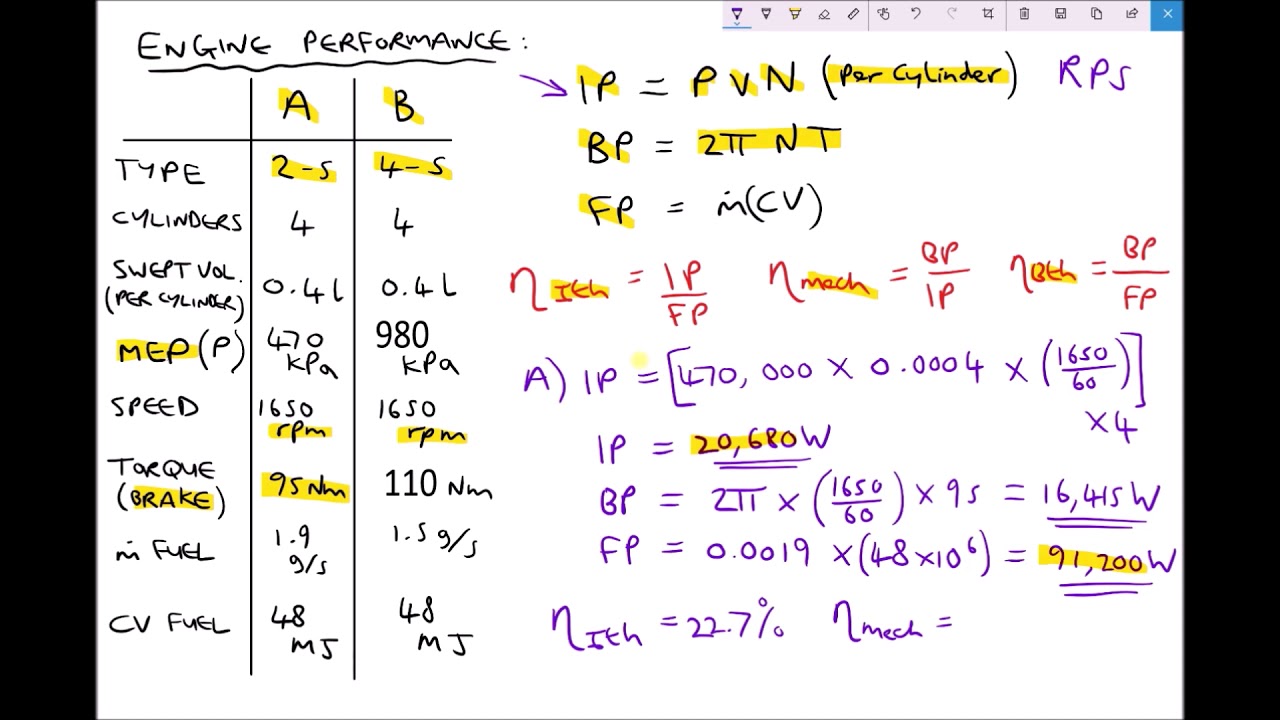 ENGINE PERFORMANCE:
A B
TYPE 2-S 4-S
CYLINDERS 4 4
SWEPT VOL. (PER CYLINDER) 0.4 l 0.4 L
MEP (P) 470 kPa 980 kPa
SPEED 1650 rpm 1650 rpm
TORQUE (BRAKE) 95 Nm 110 Nm
ṁ FUEL 1.9 g/s 1.5 g/s
CV FUEL 48 MJ 48 MJ
IP = P V N (per cylinder) RPS
BP = 2π N T
FP = ṁ(CV)
η Ith = IP/FP η mech = BP/IP η Bth = BP/FP
A) IP = [470,000 × 0.0004 × (1650/60)] × 4
IP = 20,680 W
BP = 2π × (1650/60) × 95 = 16,415 W
FP = 0.0019 × (48×10⁶) = 91,200 W
η Ith = 22.7% η mech =